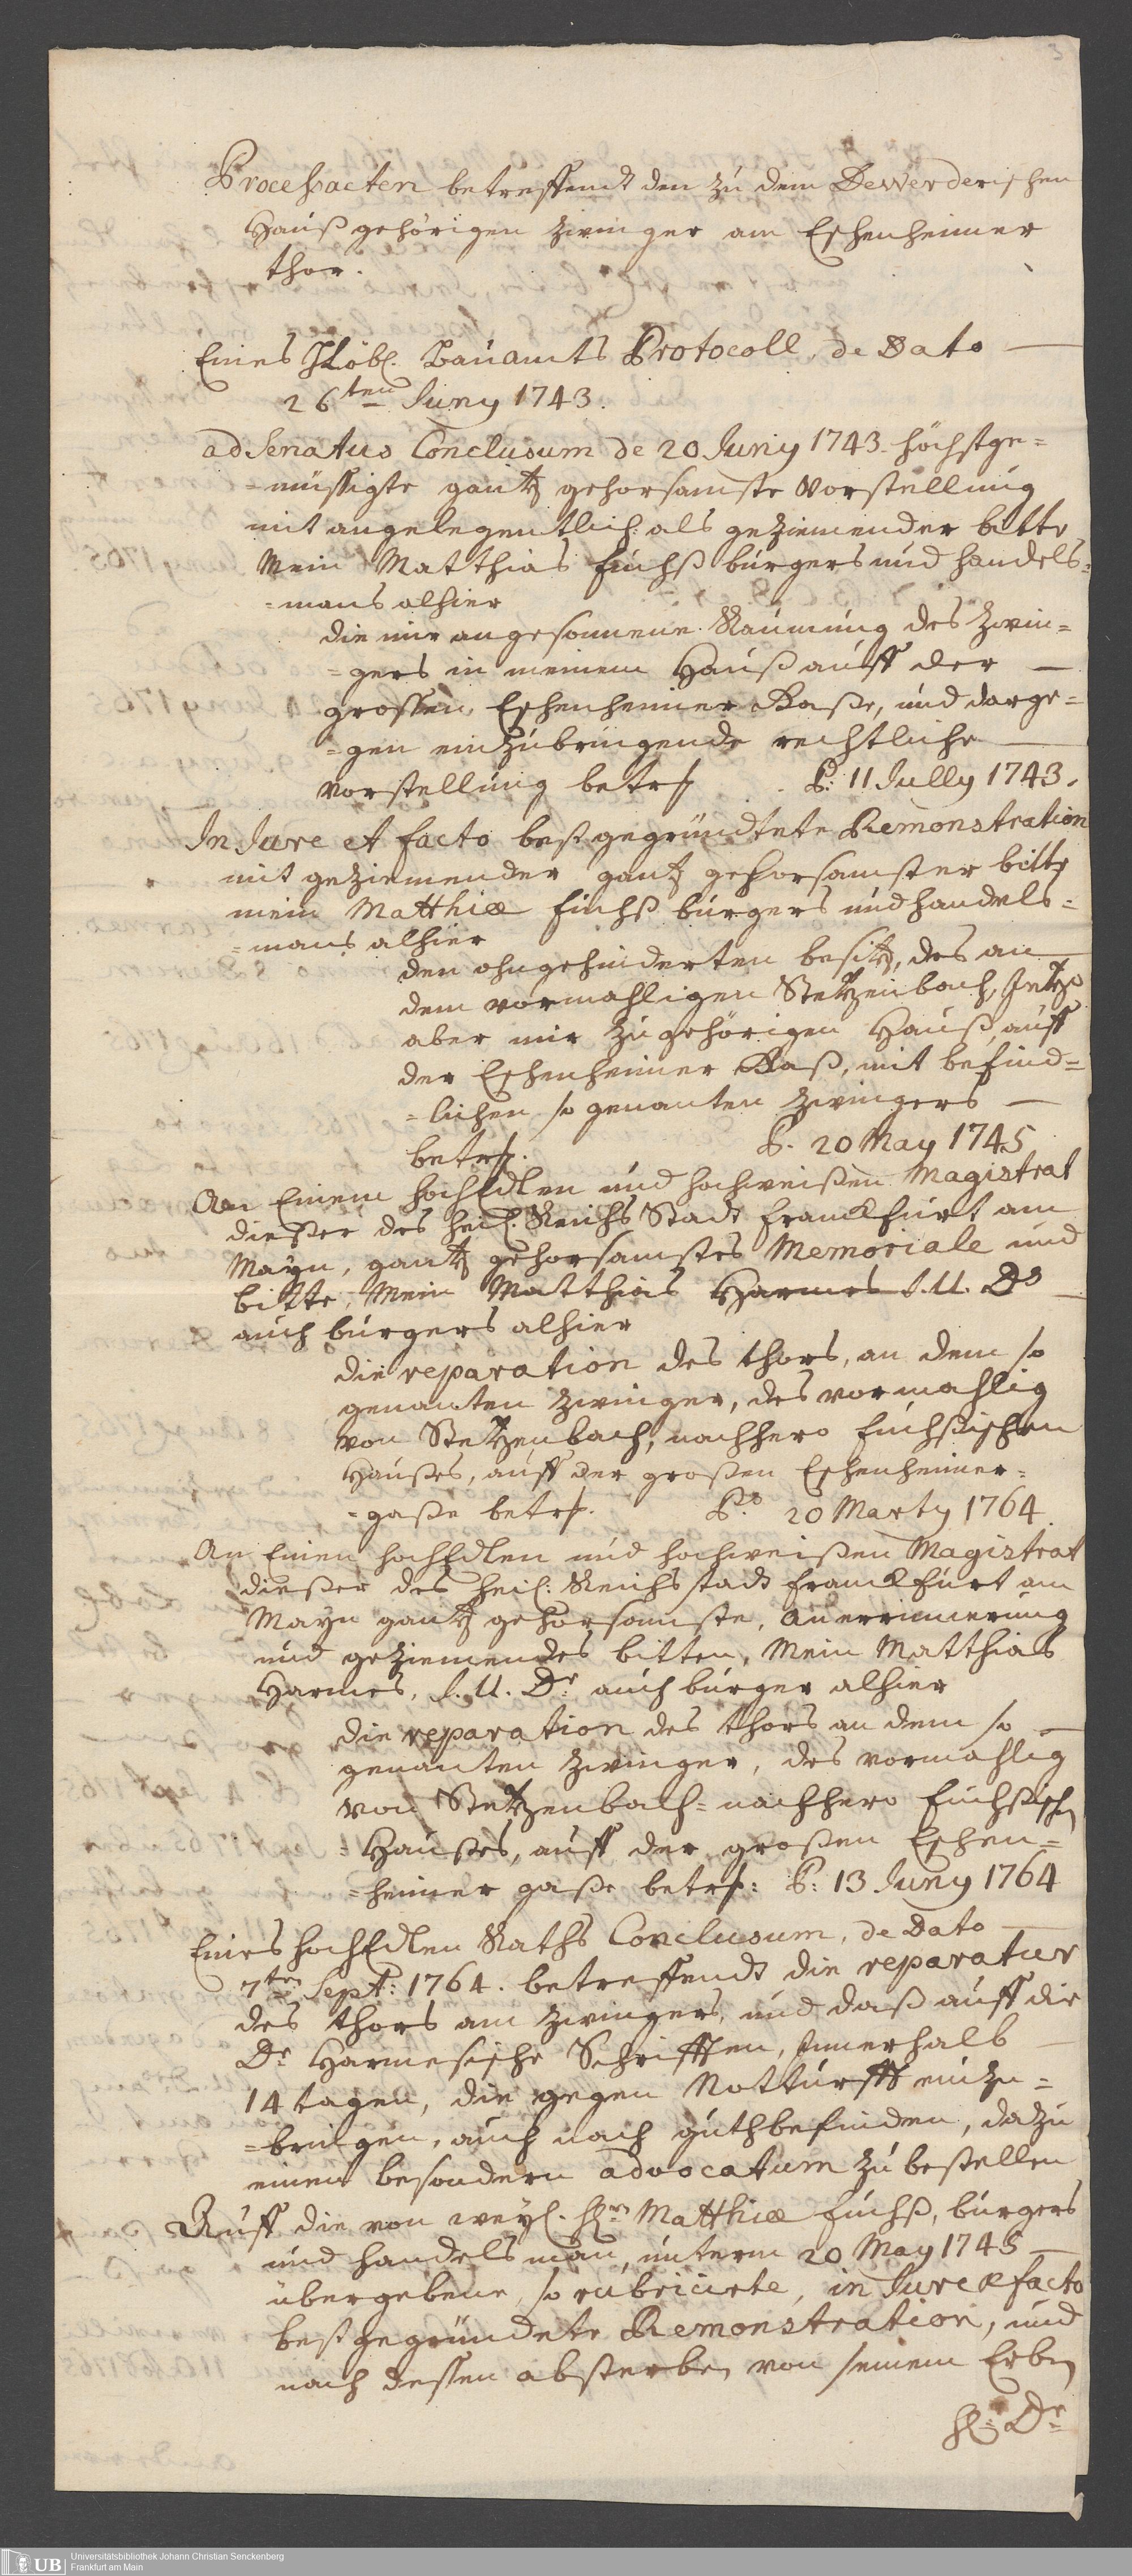 3
Processacten betreffendt den zu dem Dewerderischen
Hauß gehörigen Zwinger am Eschenheimer
thor.
Eines Hlöbl. Bauamts Protocoll, de Dato
26ten Juny 1743.
ad Senatus Conclusum de 20 Juny 1743. höchstge=
=müssigte gantz gehorsamste Vorstellung
mit angelegentlich als geziemender bitte
Mein Matthias Fuchß burgers und handels=
=mans alhier
die mir angesonnene Raumung des Zwin=
=gers in meinem Hauß auff der
grossen Eschenheimer Gaße, und darge=
=gen einzubringende rechtliche
Vorstellung betr. P: 11 Jully 1743.
In Jure et facto best gegründtete Remonstration
mit geziemender gantz gehorsamster bitte
mein Matthiæ Fuchß burgers und handels=
=mans alhier
den ohngehinderten besitz, des an
dem vormahligen Stetzenbach, Jetzo
aber mir zugehörigen Hauß, auff
der Eschenheimer Gaß, mit befind=
=lichen so genanten Zwingers
betr. P. 20 May 1745
An Einem HochEdlen und hochweißen Magistrat
dießer des Heil. Reichs Stadt Franckfurt am
Mayn, gantz gehorsamstes Memoriale und
bitte, Mein Matthias Harmes J. U. Ds
auch burgers alhier
die reparation des thors, an dem so
genanten Zwinger, des vormahlig
von Stetzenbach, nachhero Fuchßischen
Haußes, auff der großen Eschenheimer=
=gaße betr. Ps. 20 Marty 1764.
An Einen HochEdlen und hochweißen Magistrat
dießer des Heil. Reichs stadt Franckfurt am
Mayn gantz gehorsamste, Anerinnerung
und geziemendes bitten, Mein Matthias
Harmes, J. U. Dr auch burger alhier
die reparation des thors an dem so
genanten Zwinger, des vormahlig
von Stetzenbach= nachhero Fuchßischen
Haußes, auff der großen Eschen=
=heimer gaße betr: P: 13 Juny 1764
Eines HochEdlen Raths Conclusum, de Dato
7ten Sept: 1764. betreffendt die reparatur
des thors am Zwingers, und daß auff die
Dr Harmesische Schrifften, Innerhalb
14 tagen, die gegen Notturfft einzu=
=bringen, auch nach guthbefinden, dazu
einen besondern advocatum zu bestellen
Auff die von weyl. Hrn Matthiæ Fuchß, burgers
und handelsman, unterm 20 May 1745
übergebene, so rubricirte, in Jure & facto
best gegründete Remonstration, und
nach dessen absterben von seinem Erben
H: Dr
UB
Universitätsbibliothek Johann Christian Senckenberg
Frankfurt am Main